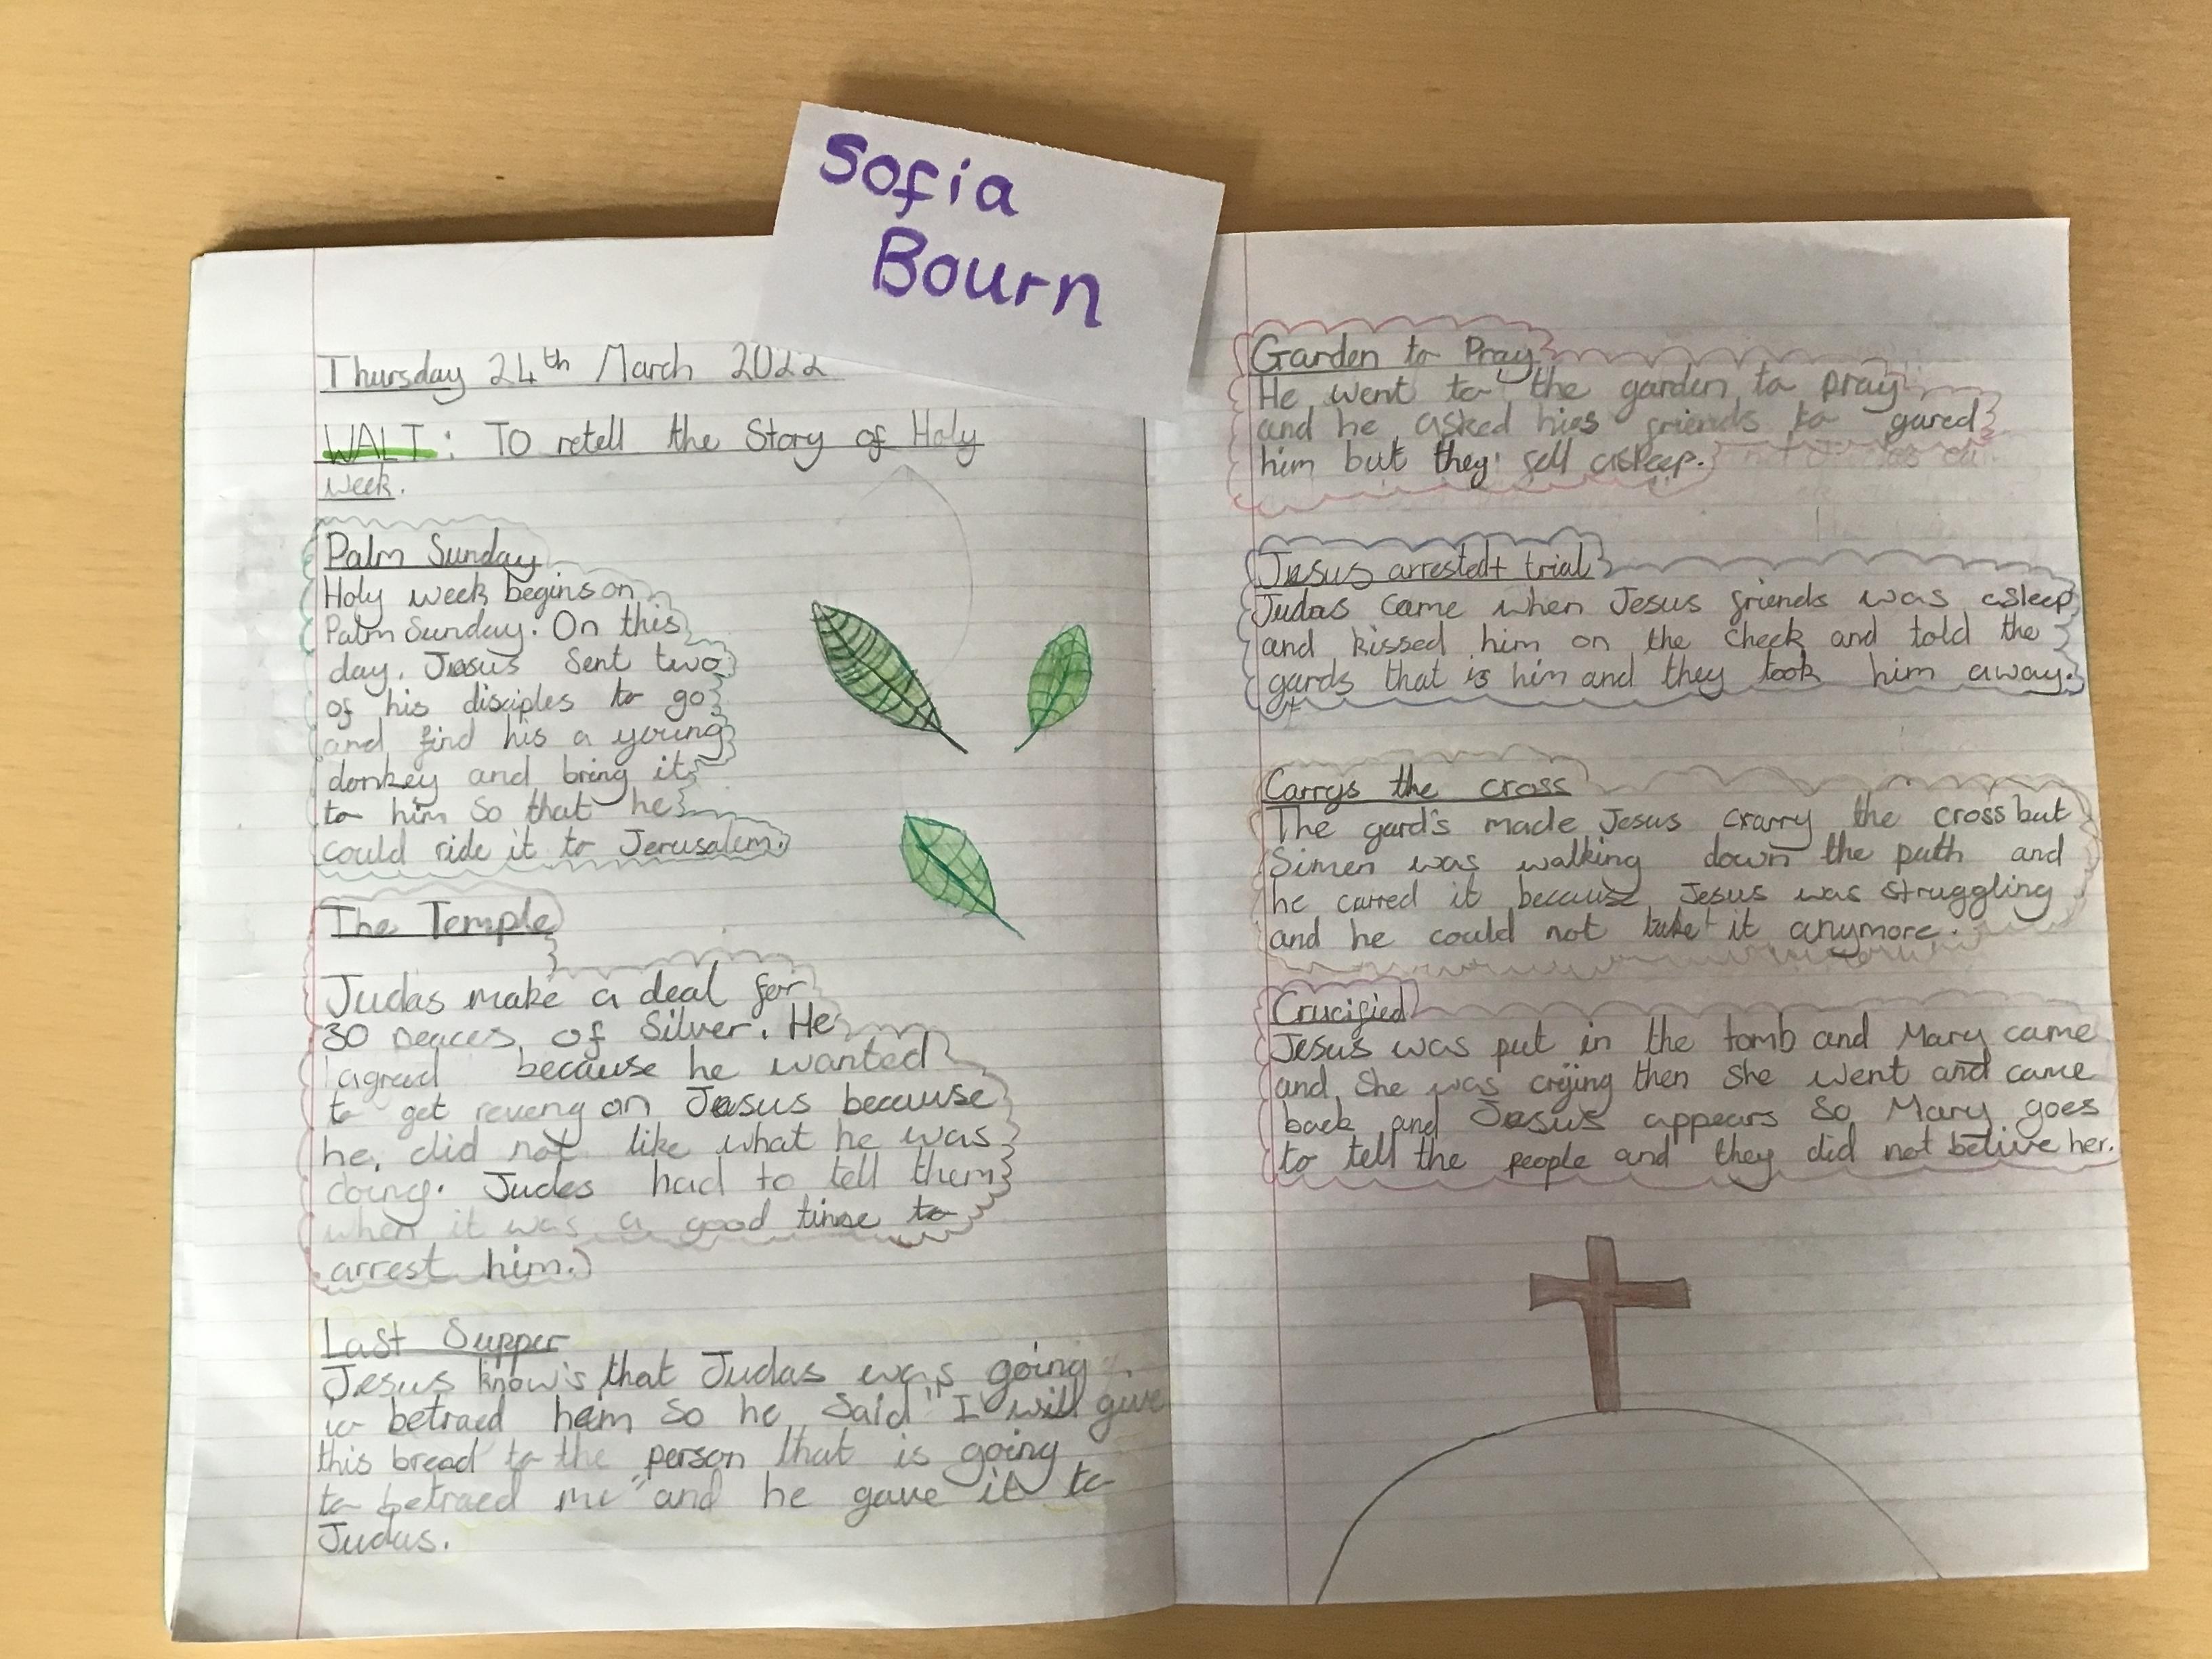 Sofia
Bourn
Thursday 24th March 2022
WALT: To retell the Story of Holy
Week.
Palm Sunday
Holy week begins on
Palm Sunday. On this
day, Jesus sent two
of his disciples to go
and find his a young
donkey and bring it
to him so that he
could ride it to Jerusalem.
The Temple
Judas make a deal for
30 peaces of Silver. He
agread because he wanted
to get reveng on Jesus because
he, did not like what he was
doing. Judes had to tell them
when it was a good time to
arrest him.
Last Supper
Jesus know's that Judas was going
to betraed him so he said "I will give
this bread to the person that is going
to betraed me" and he gave it to
Judus.
Garden to Pray
He went to the garden to pray
and he asked his friends to gared
him but they fell asleep.
Jesus arrested+ trial
Judas came when Jesus friends was asleep
and kissed him on the cheek and told the
gards that is him and they took him away.
Carrys the cross
The gard's made Jesus crarry the cross but
Simen was walking down the path and
he carred it because Jesus was struggling
and he could not take it anymore.
Crucified
Jesus was put in the tomb and Mary came
and She was crying then She went and came
back and Jesus appears So Mary goes
to tell the people and they did not belive her.